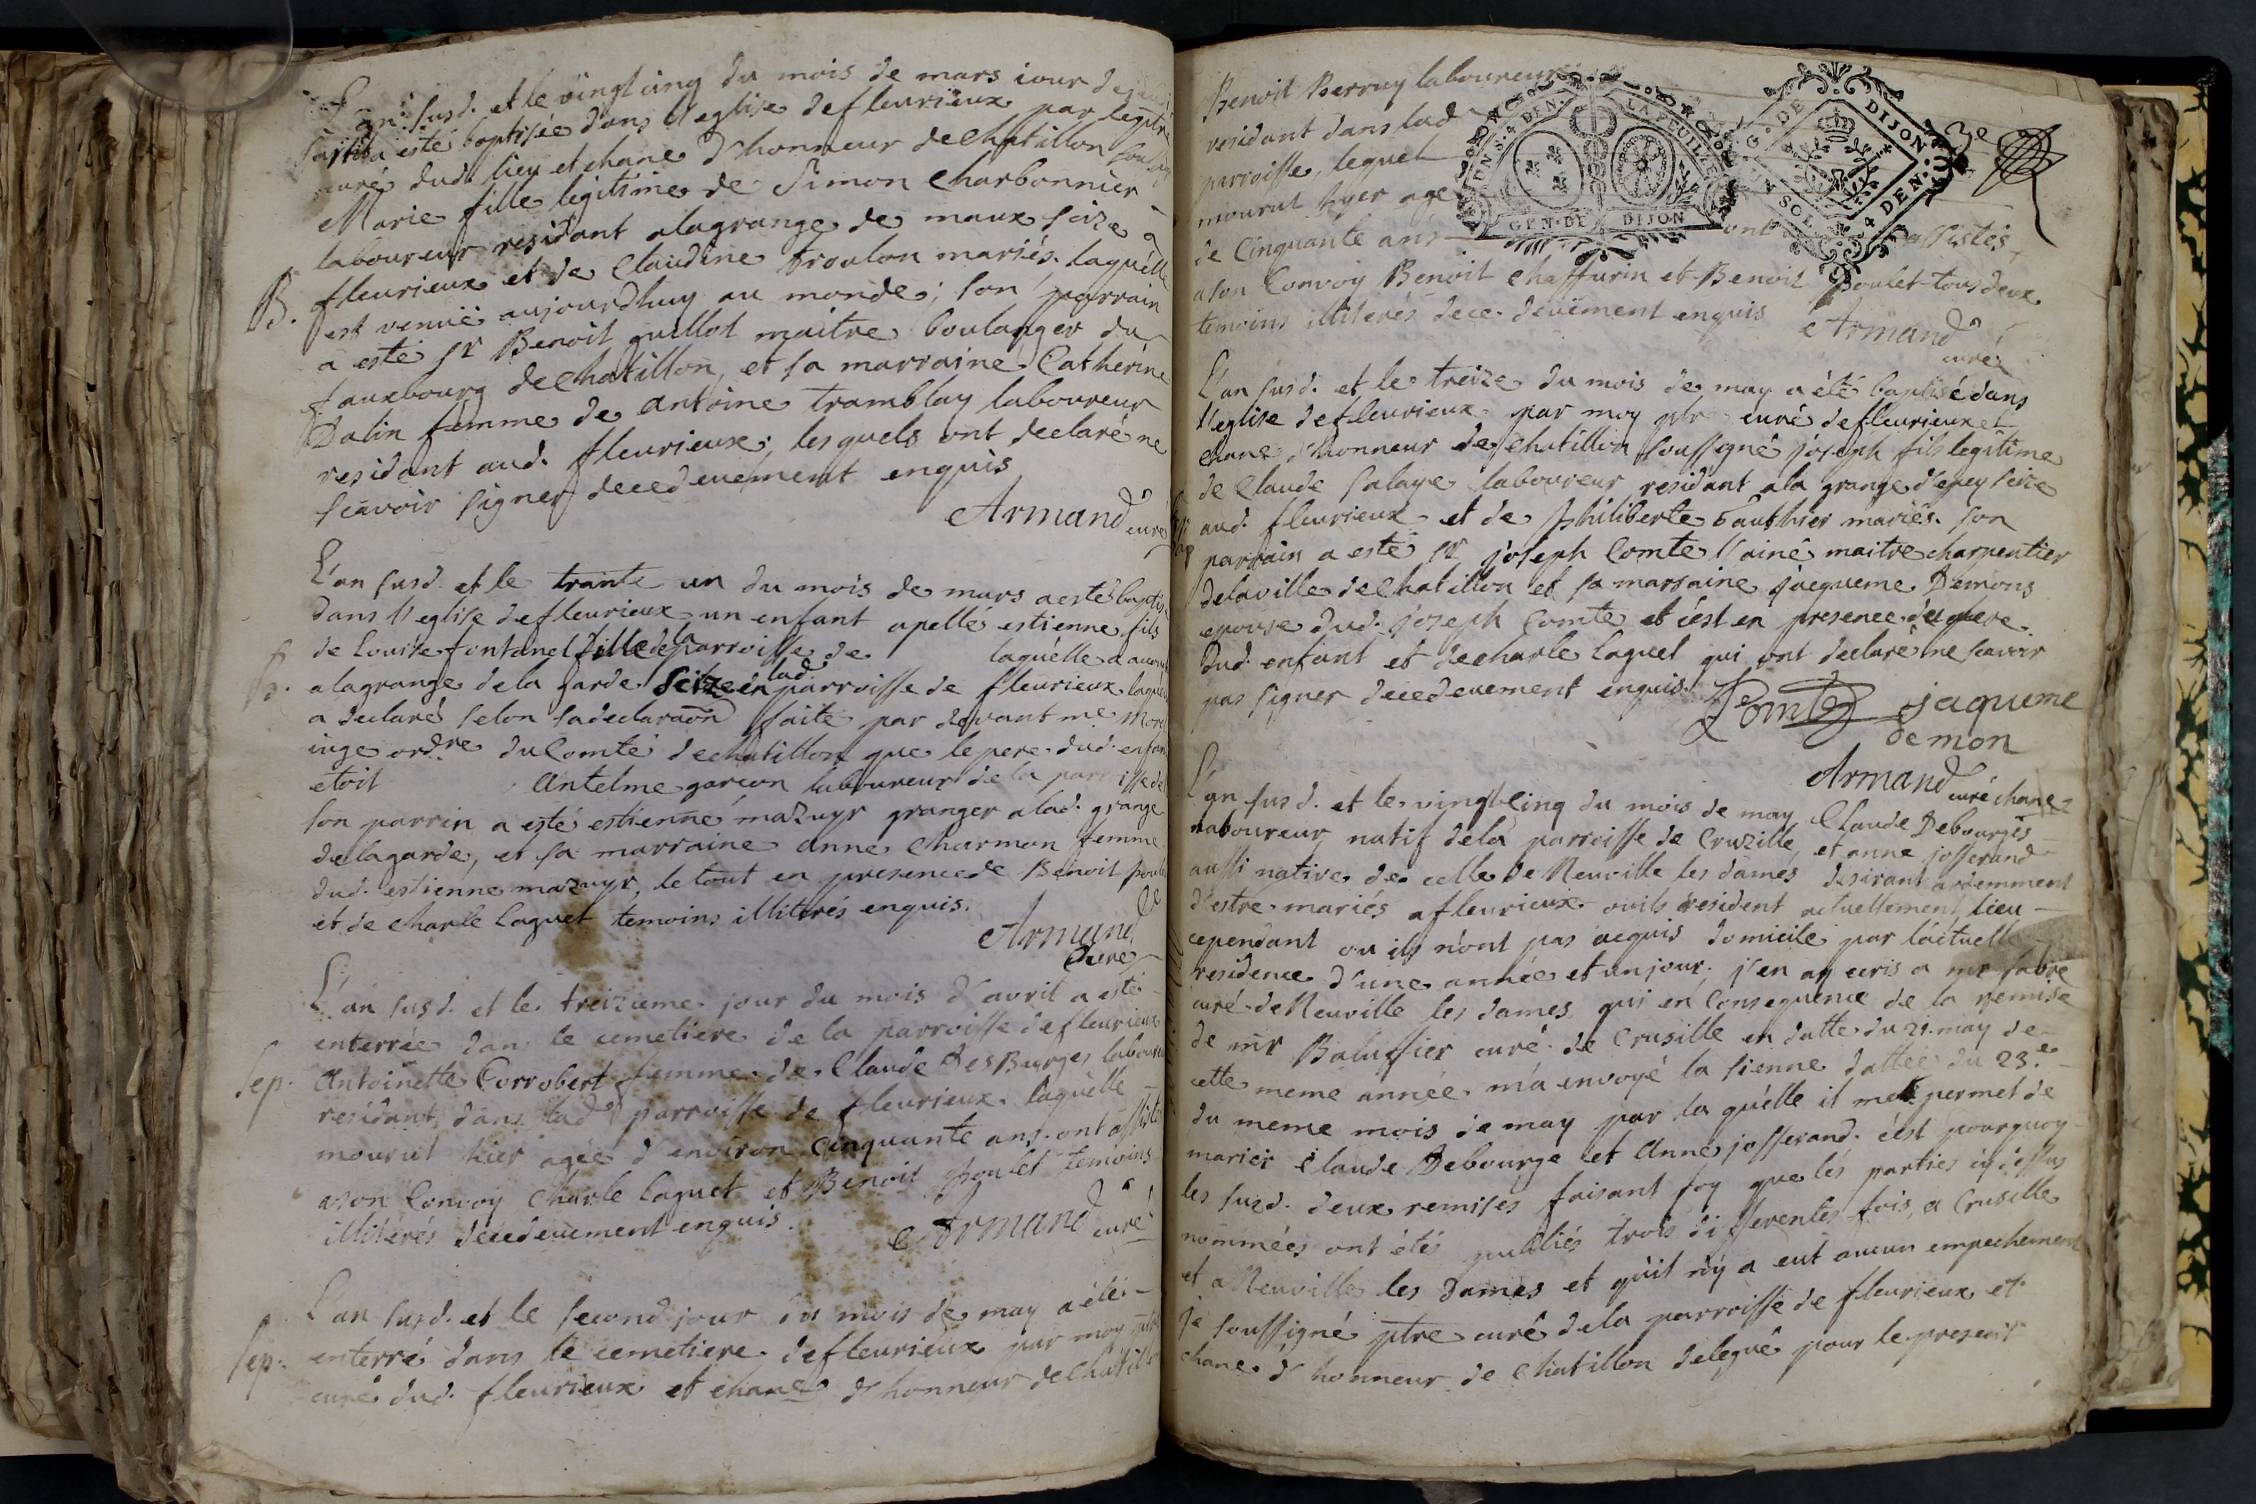 L'an susd. et le vingt cinq du mois de mars iour de
a esté baptisée dans l'eglise de fleurieux par le ptre
curé dud. lieu et chane d'honneur de Chatillon
Marie fille legitime de Simon Charbonnier
laboureur residant a lagrange de maux size a
B. fleurieux et de Claudine troulon mariés. laquelle
est venuë aujourdhuy au monde; son parrain
a esté Sr Benoit guillot maitre boulanger du
fauxbourg de Chatillon, et sa marraine Catherine
Dalin femme de antoine Tramblay laboureur
residant aud. fleurieux; lesquels ont declaré ne
sçavoir signer decedevement enquis
Armand curé
L'an susd. et le trante un du mois de mars a esté baptisé
dans l'eglise de fleurieux un enfant apellé estienne fils
de Louise fontanel fille de la parroisse de laquelle a
B. a lagrange de la garde Seize en lad. parroisse de fleurieux laquelle
a declaré selon sa declaraôn faite par devant me
iuge ordre du Comté de chatillon que le pere dud. enfant
etoit Antelme garçon laboureur de la parroisse de
son parrin a esté estienne mazuyr granger a lad. grange
de lagarde, et sa marraine anne Charman femme
dud. estienne mazuyr, le tout en presence de Benoit poulet
et de Charle Laguet temoins illiterés enquis.
Armand
Curé
L'an susd. et le treizieme jour du mois d'avril a esté
enterrée dans le cemetiere de la parroisse de fleurieux
Sep. Antoinette Corrobert femme de Claude DesBurges laboureur
residant dans lad parroisse de fleurieux laquelle
mourut hier agée d'environ Cinquante ans. ont assisté
a son Convoy Charle Laguet et Benoit poulet temoins
illiterés decedevement enquis. Armand curé
L'an susd. et le second jour du mois de may a été
Sep. enterré dans le cemetiere de fleurieux par moy ptre
curé dud. fleurieux et chane d'honneur de Chatillon
Benoit Berruy laboureur
residant dans lad
parroisse, lequel
mourut hyer age
de Cinquante ans ont assistés
a son Convoy Benoit Chaffurin et Benoit poulet tous deux
temoins illiterés dece. devëment enquis Armand
curé
GEN. DE DIJON
LA FEUILLE
4 DEN.
G. DE DIJON
SOL. 4 DEN.
3e
L'an susd. et le treize du mois de may a été baptisé dans
l'eglise de fleurieux par moy ptre curé de fleurieux et
chane d'honneur de Chatillon soussigné joseph fils legitime
de Claude Salaye laboureur residant a la grange d'epey seize
aud. fleurieux et de philiberte Gauthier mariés. son
parrain a esté Sr joseph Comte l'ainé maitre charpentier
de la ville de Chatillon et sa marraine jacqueme Demons
epouse dud. joseph Comte et c'est en presence du pere
dud. enfant et de charle laguet qui ont declaré ne scavoir
pas signer decedevement enquis. Comte jaqueme
demon
Armand curé chane
L'an susd. et le vingt cinq du mois de may Claude Debourges
laboureur natif de la parroisse de Cruzille, et anne josserand
aussi native de celle de Neuville les dames desirant ardemment
d'estre mariés a fleurieux ou ils resident actuellement lieu
cependant ou ils n'ont pas acquis domicile par l'actuelle
residence d'une année et un jour. j'en ay ecris a mr fabre
curé de Neuville les dames qui en Consequence de la remise
de mr Baluffier curé de Crusille en datte du 21. may de
cette meme année m'a envoyé la sienne dattée du 23.e
du meme mois de may par la quelle il me permet de
marier Claude Debourge et Anne josserand. c'est pourquoy
les susd. deux remises faisant foy que les parties cy dessus
nommées ont étés publiés trois differentes fois a Crusille
et a Neuville les Dames et quil n'y a eut aucun empechement
je soussigné ptre curé de la parroisse de fleurieux et
chane d'honneur de Chatillon delegué pour le present